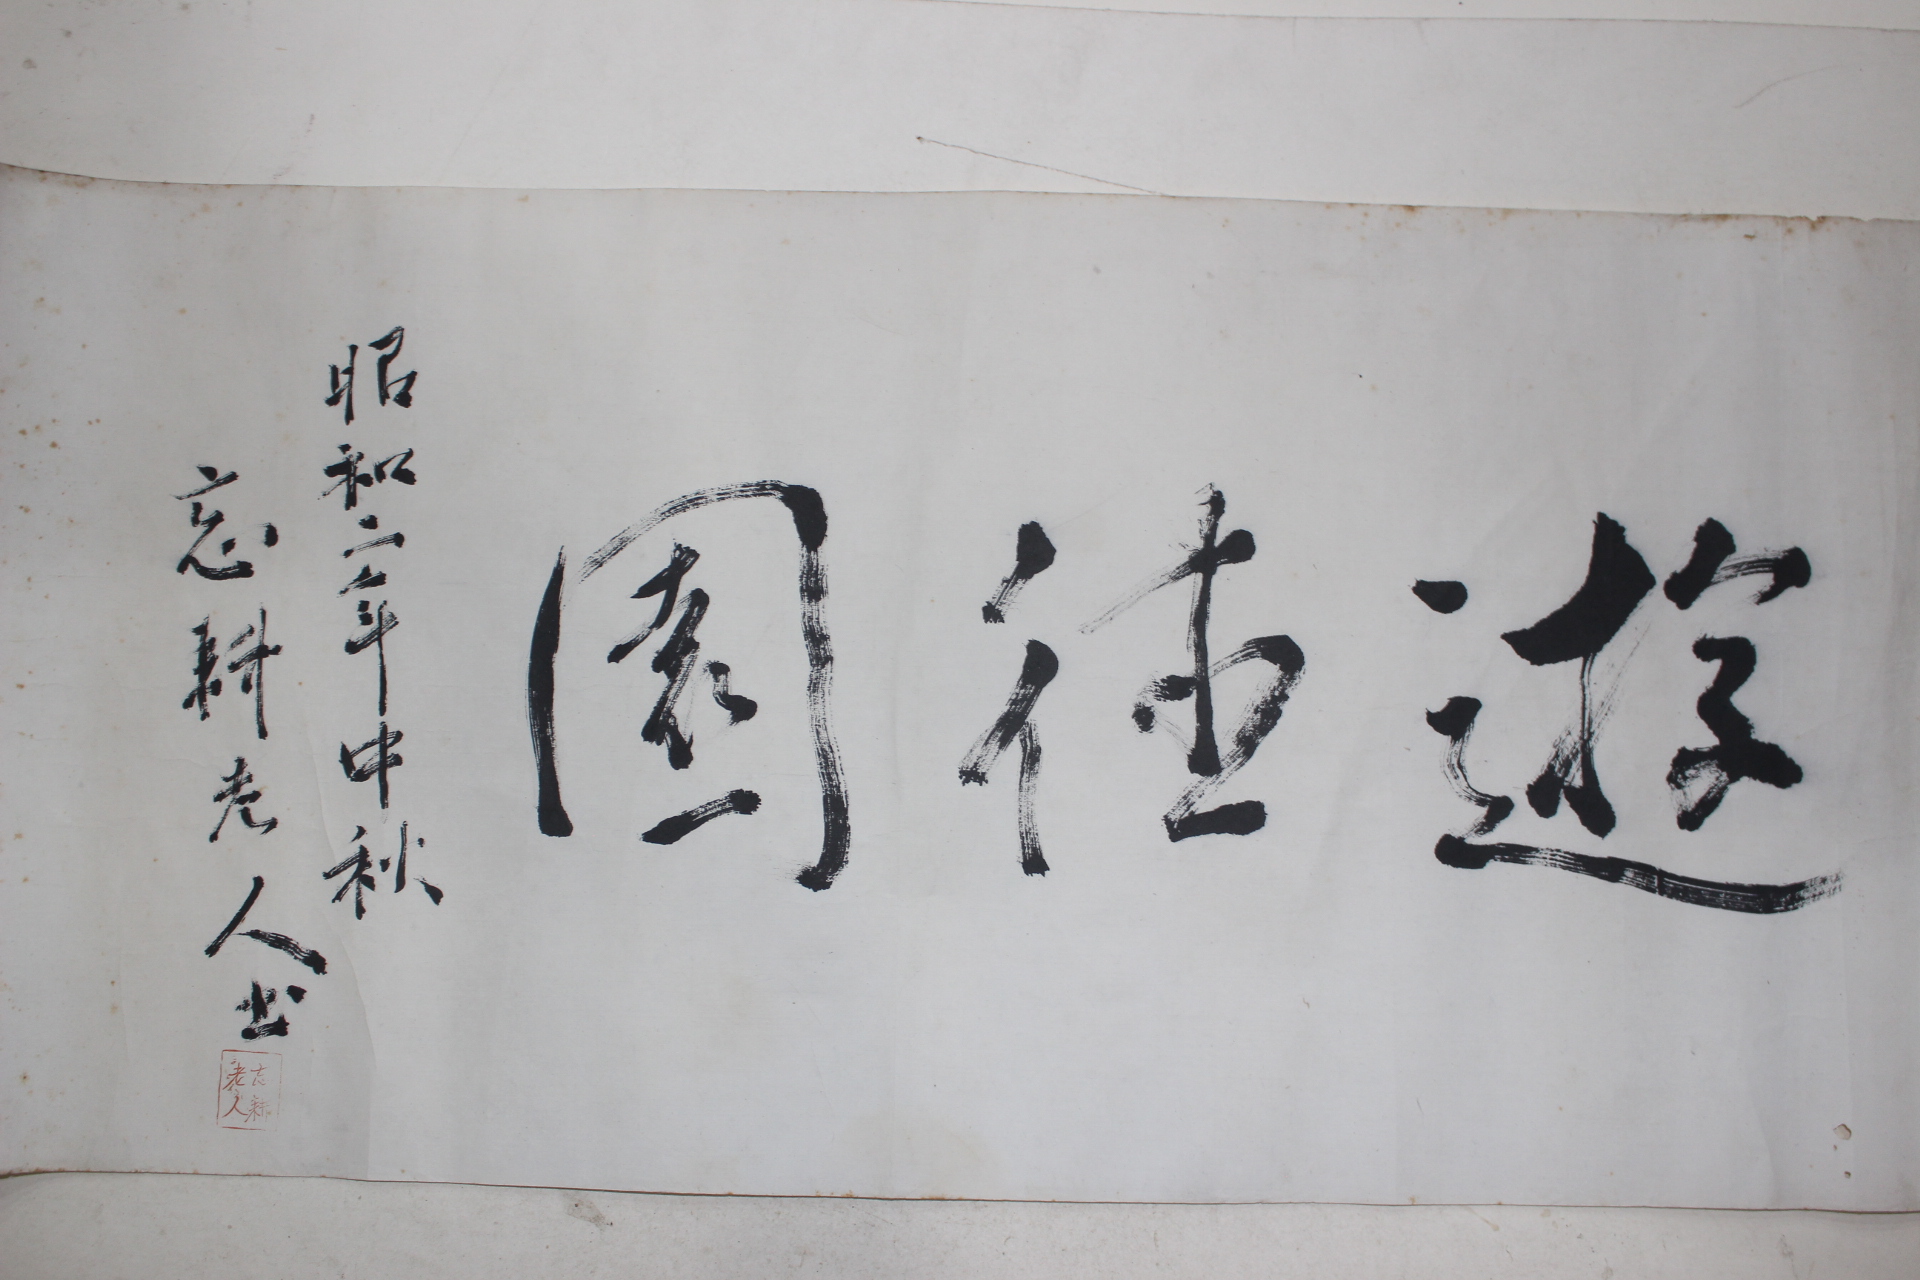 遊徳園
昭和二年中秋
忘耕老人書
忘耕
老人